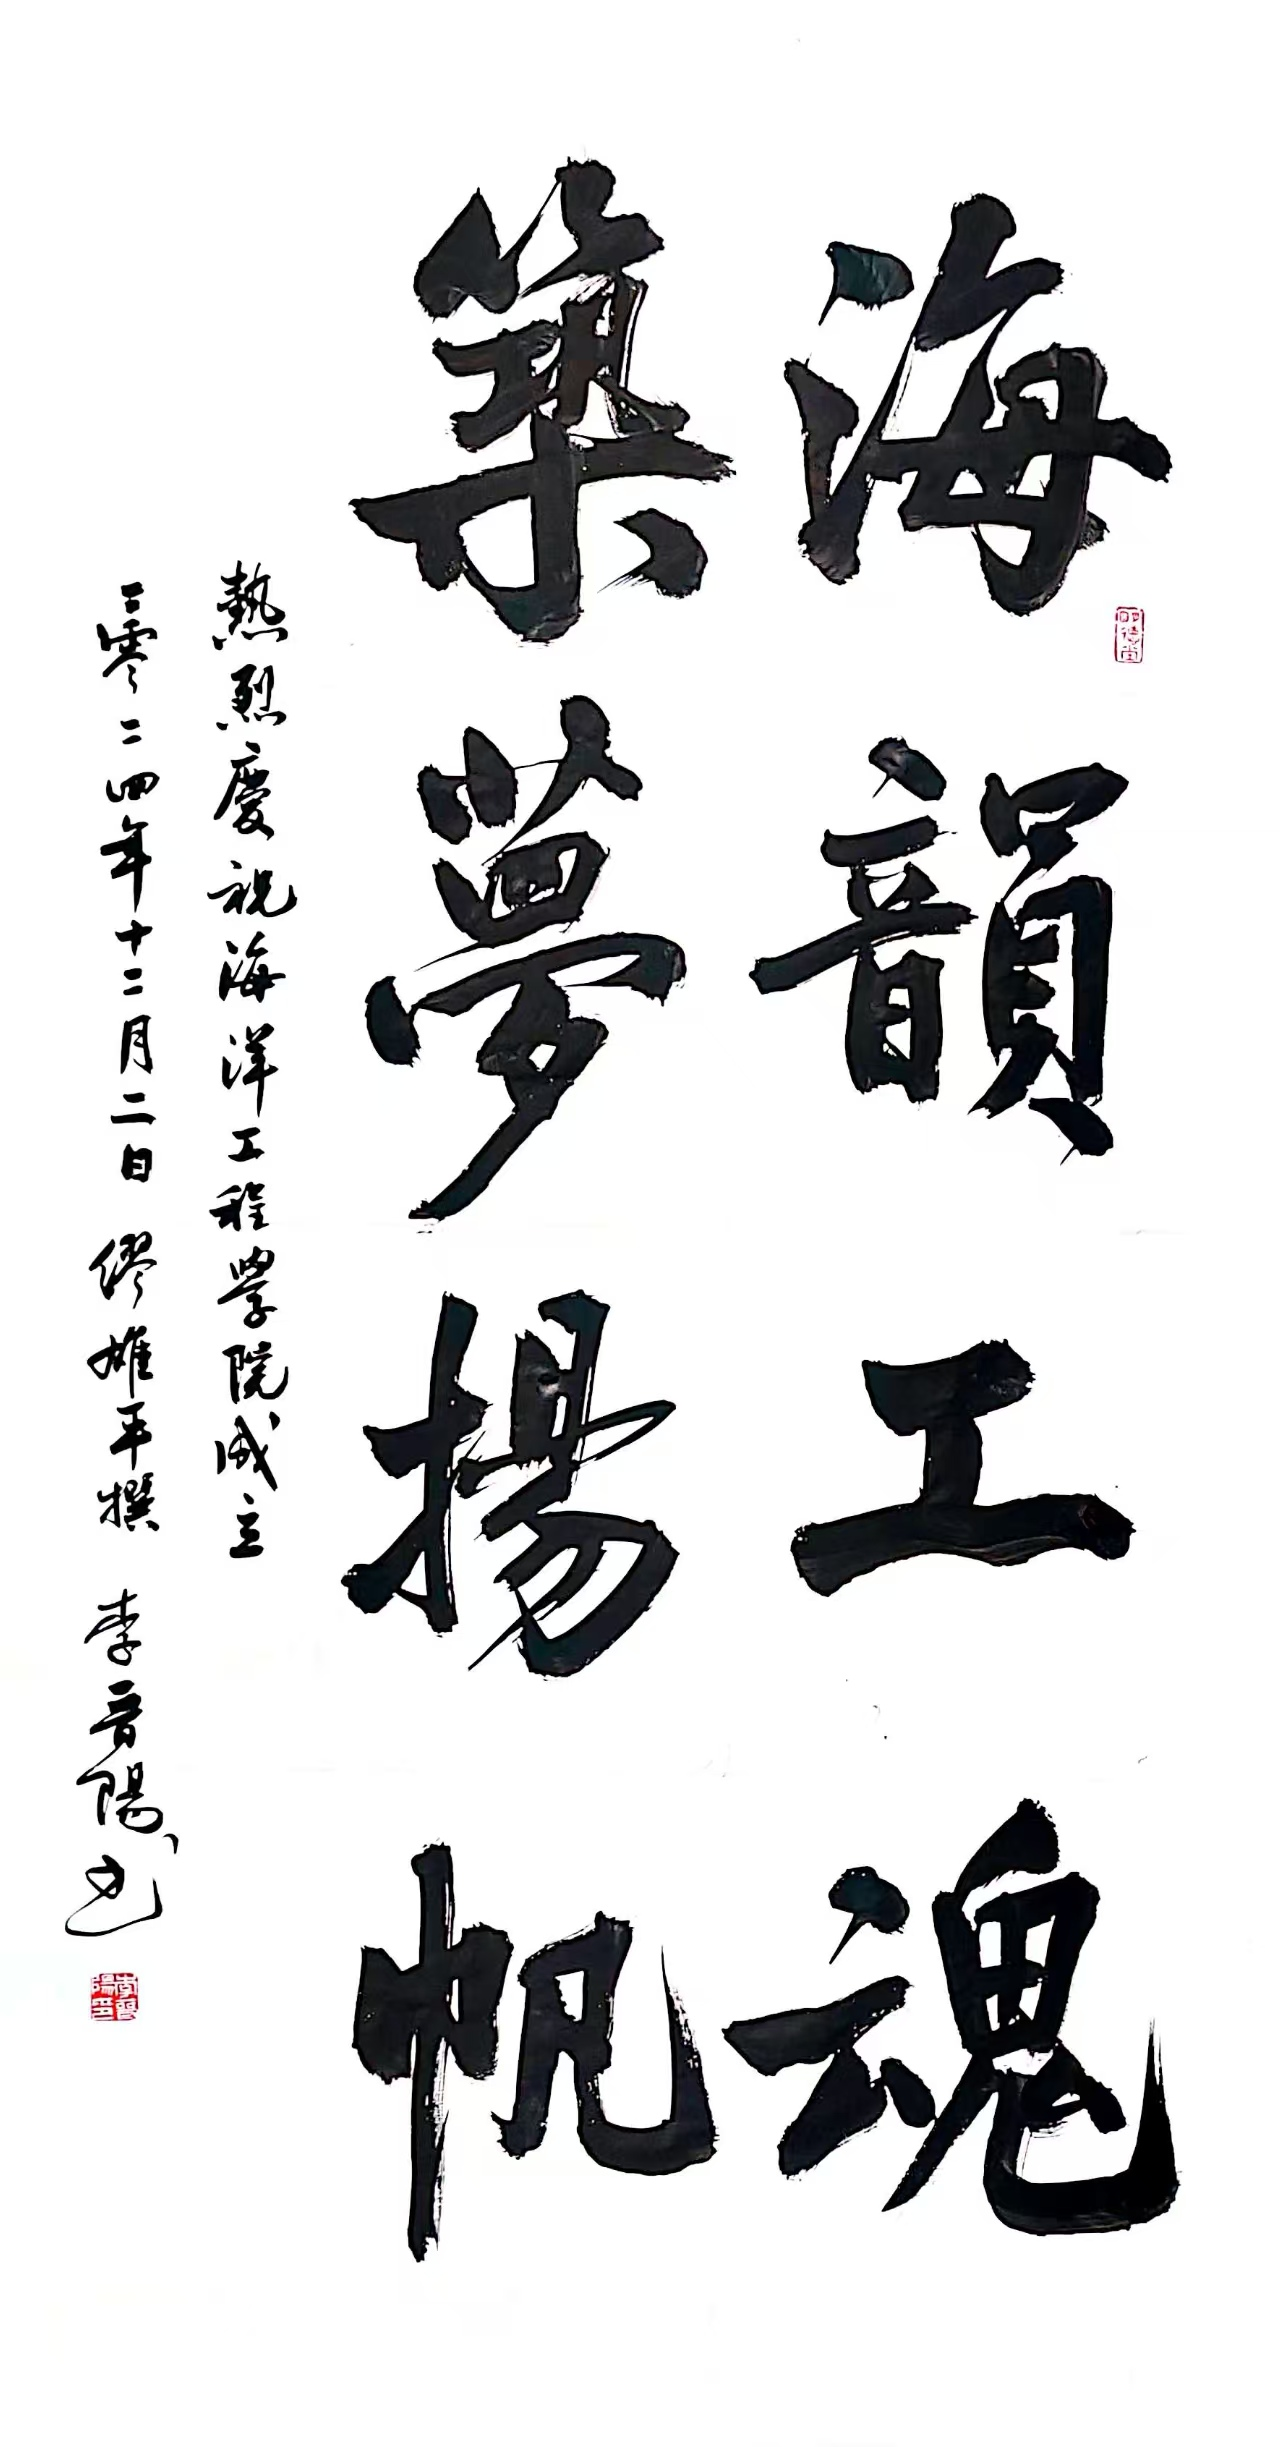 海韻工魂
築夢揚帆
熱烈慶祝海洋工程學院成立
二零二四年十二月二日 繆雄平撰 李晋陽书